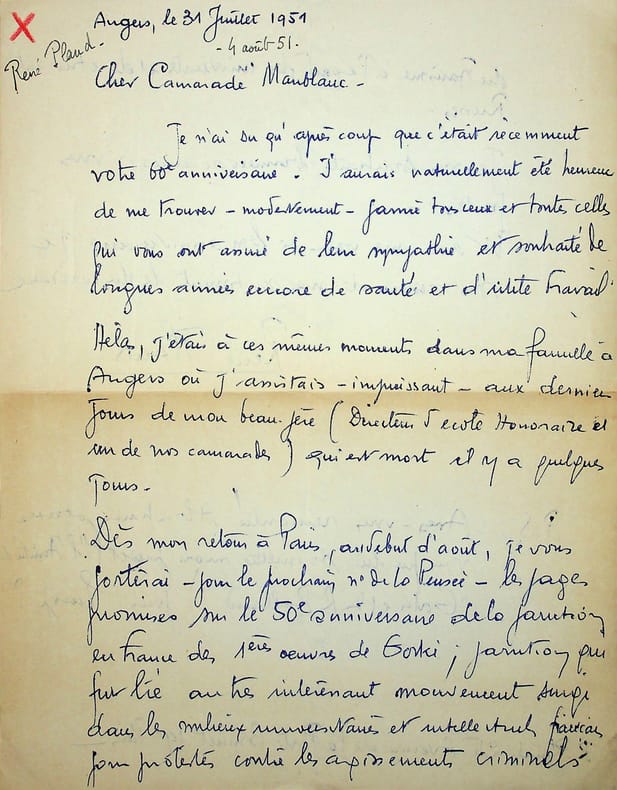 Angers, le 31 Juillet 1951
- 4 août 51.
René Plaud.
Cher Camarade Maublanc -
Je n'ai su qu'après coup que c'était récemment
votre 60e anniversaire. J'aurais naturellement été heureux
de me trouver - modestement - parmi tous ceux et toutes celles
qui vous ont assuré de leur sympathie et souhaité de
longues années encore de santé et d'utile travail.
Hélas, j'étais à ces mêmes moments dans ma famille à
Angers où j'assistais - impuissant - aux derniers
jours de mon beau-père (Directeur d'école Honoraire et
un de nos camarades) qui est mort il y a quelques
jours -
Dès mon retour à Paris, au début d'août, je vous
porterai - pour le prochain n° de la Pensée - les pages
promises sur le 50e anniversaire de la parution
en France des 1ères oeuvres de Gorki ; parution qui
fut lié au très intéressant mouvement surgi
dans les milieux universitaires et intellectuels français
pour protester contre les agissements criminels